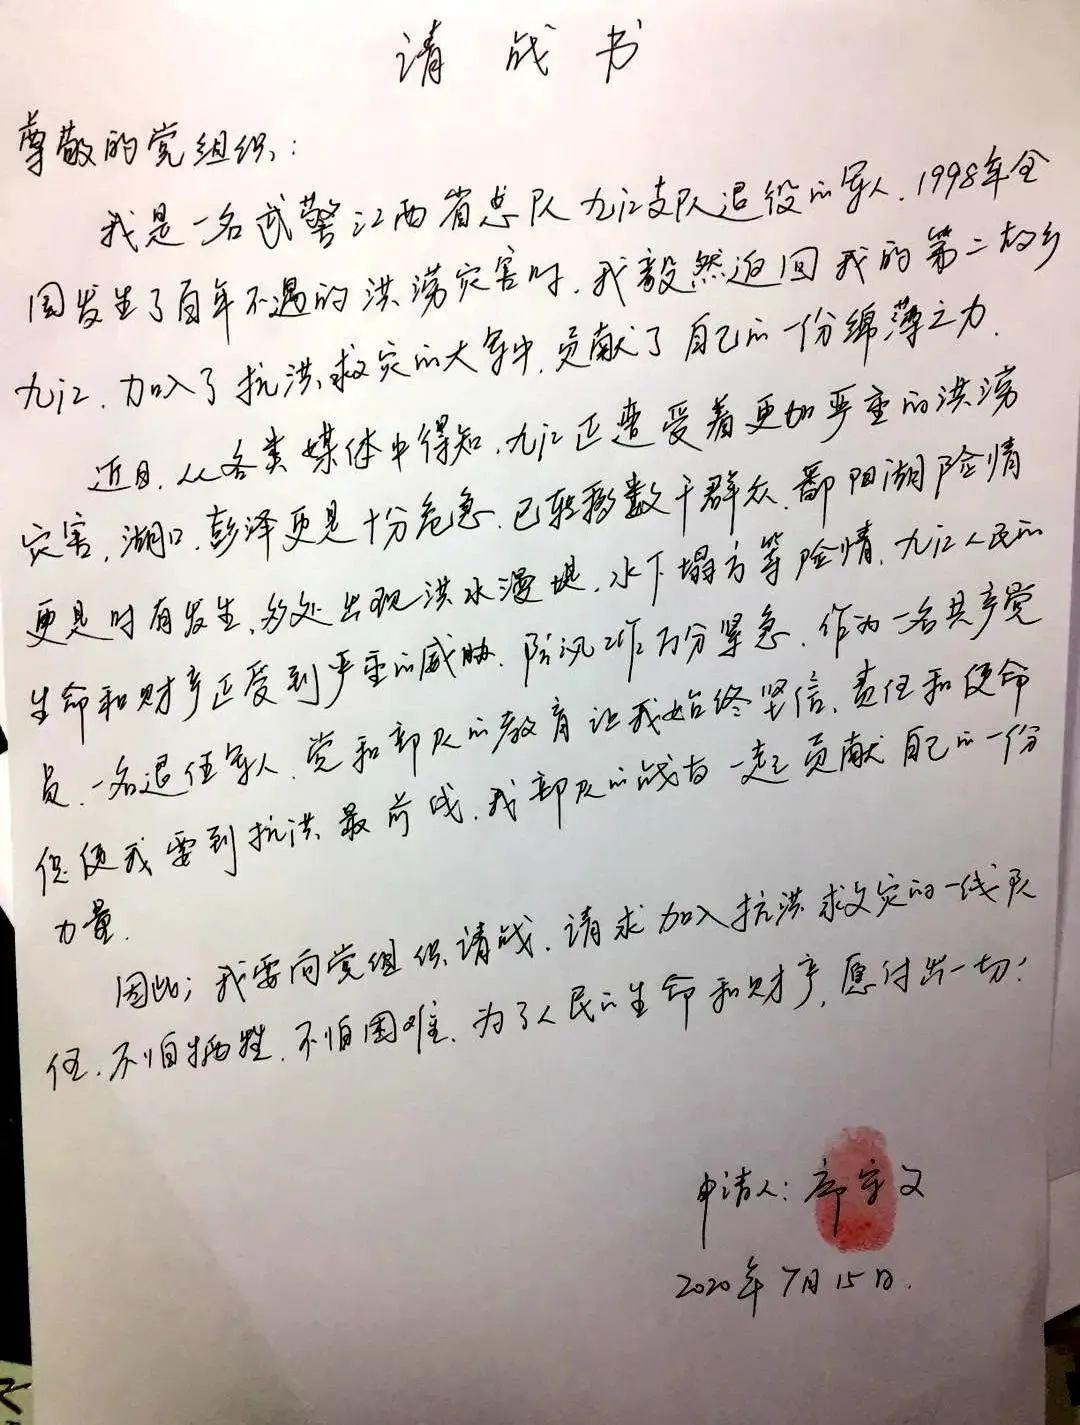 请战书
尊敬的党组织:
我是一名武警江西省总队九江支队退役的军人.1998年全
国发生了百年不遇的洪涝灾害时.我毅然返回我的第二故乡
九江.加入了抗洪救灾的大军中.贡献了自己的一份绵薄之力.
近日.从各类媒体中得知.九江正遭受着更加严重的洪涝
灾害.湖口.彭泽更是十分危急.已转移数千群众.鄱阳湖险情
更是时有发生、多处出现洪水漫堤.水下塌方等险情.九江人民的
生命和财产正受到严重的威胁.防汛工作万分紧急.作为一名共产党
员.一名退伍军人.党和部队的教育让我始终坚信.责任和使命
促使我要到抗洪最前线.我部队的战友一起贡献自己的一份
力量.
因此;我要向党组织请战.请求加入抗洪救灾的一线队
伍.不怕牺牲.不怕困难.为了人民的生命和财产.愿付出一切!
申请人:文
2020年7月15日.